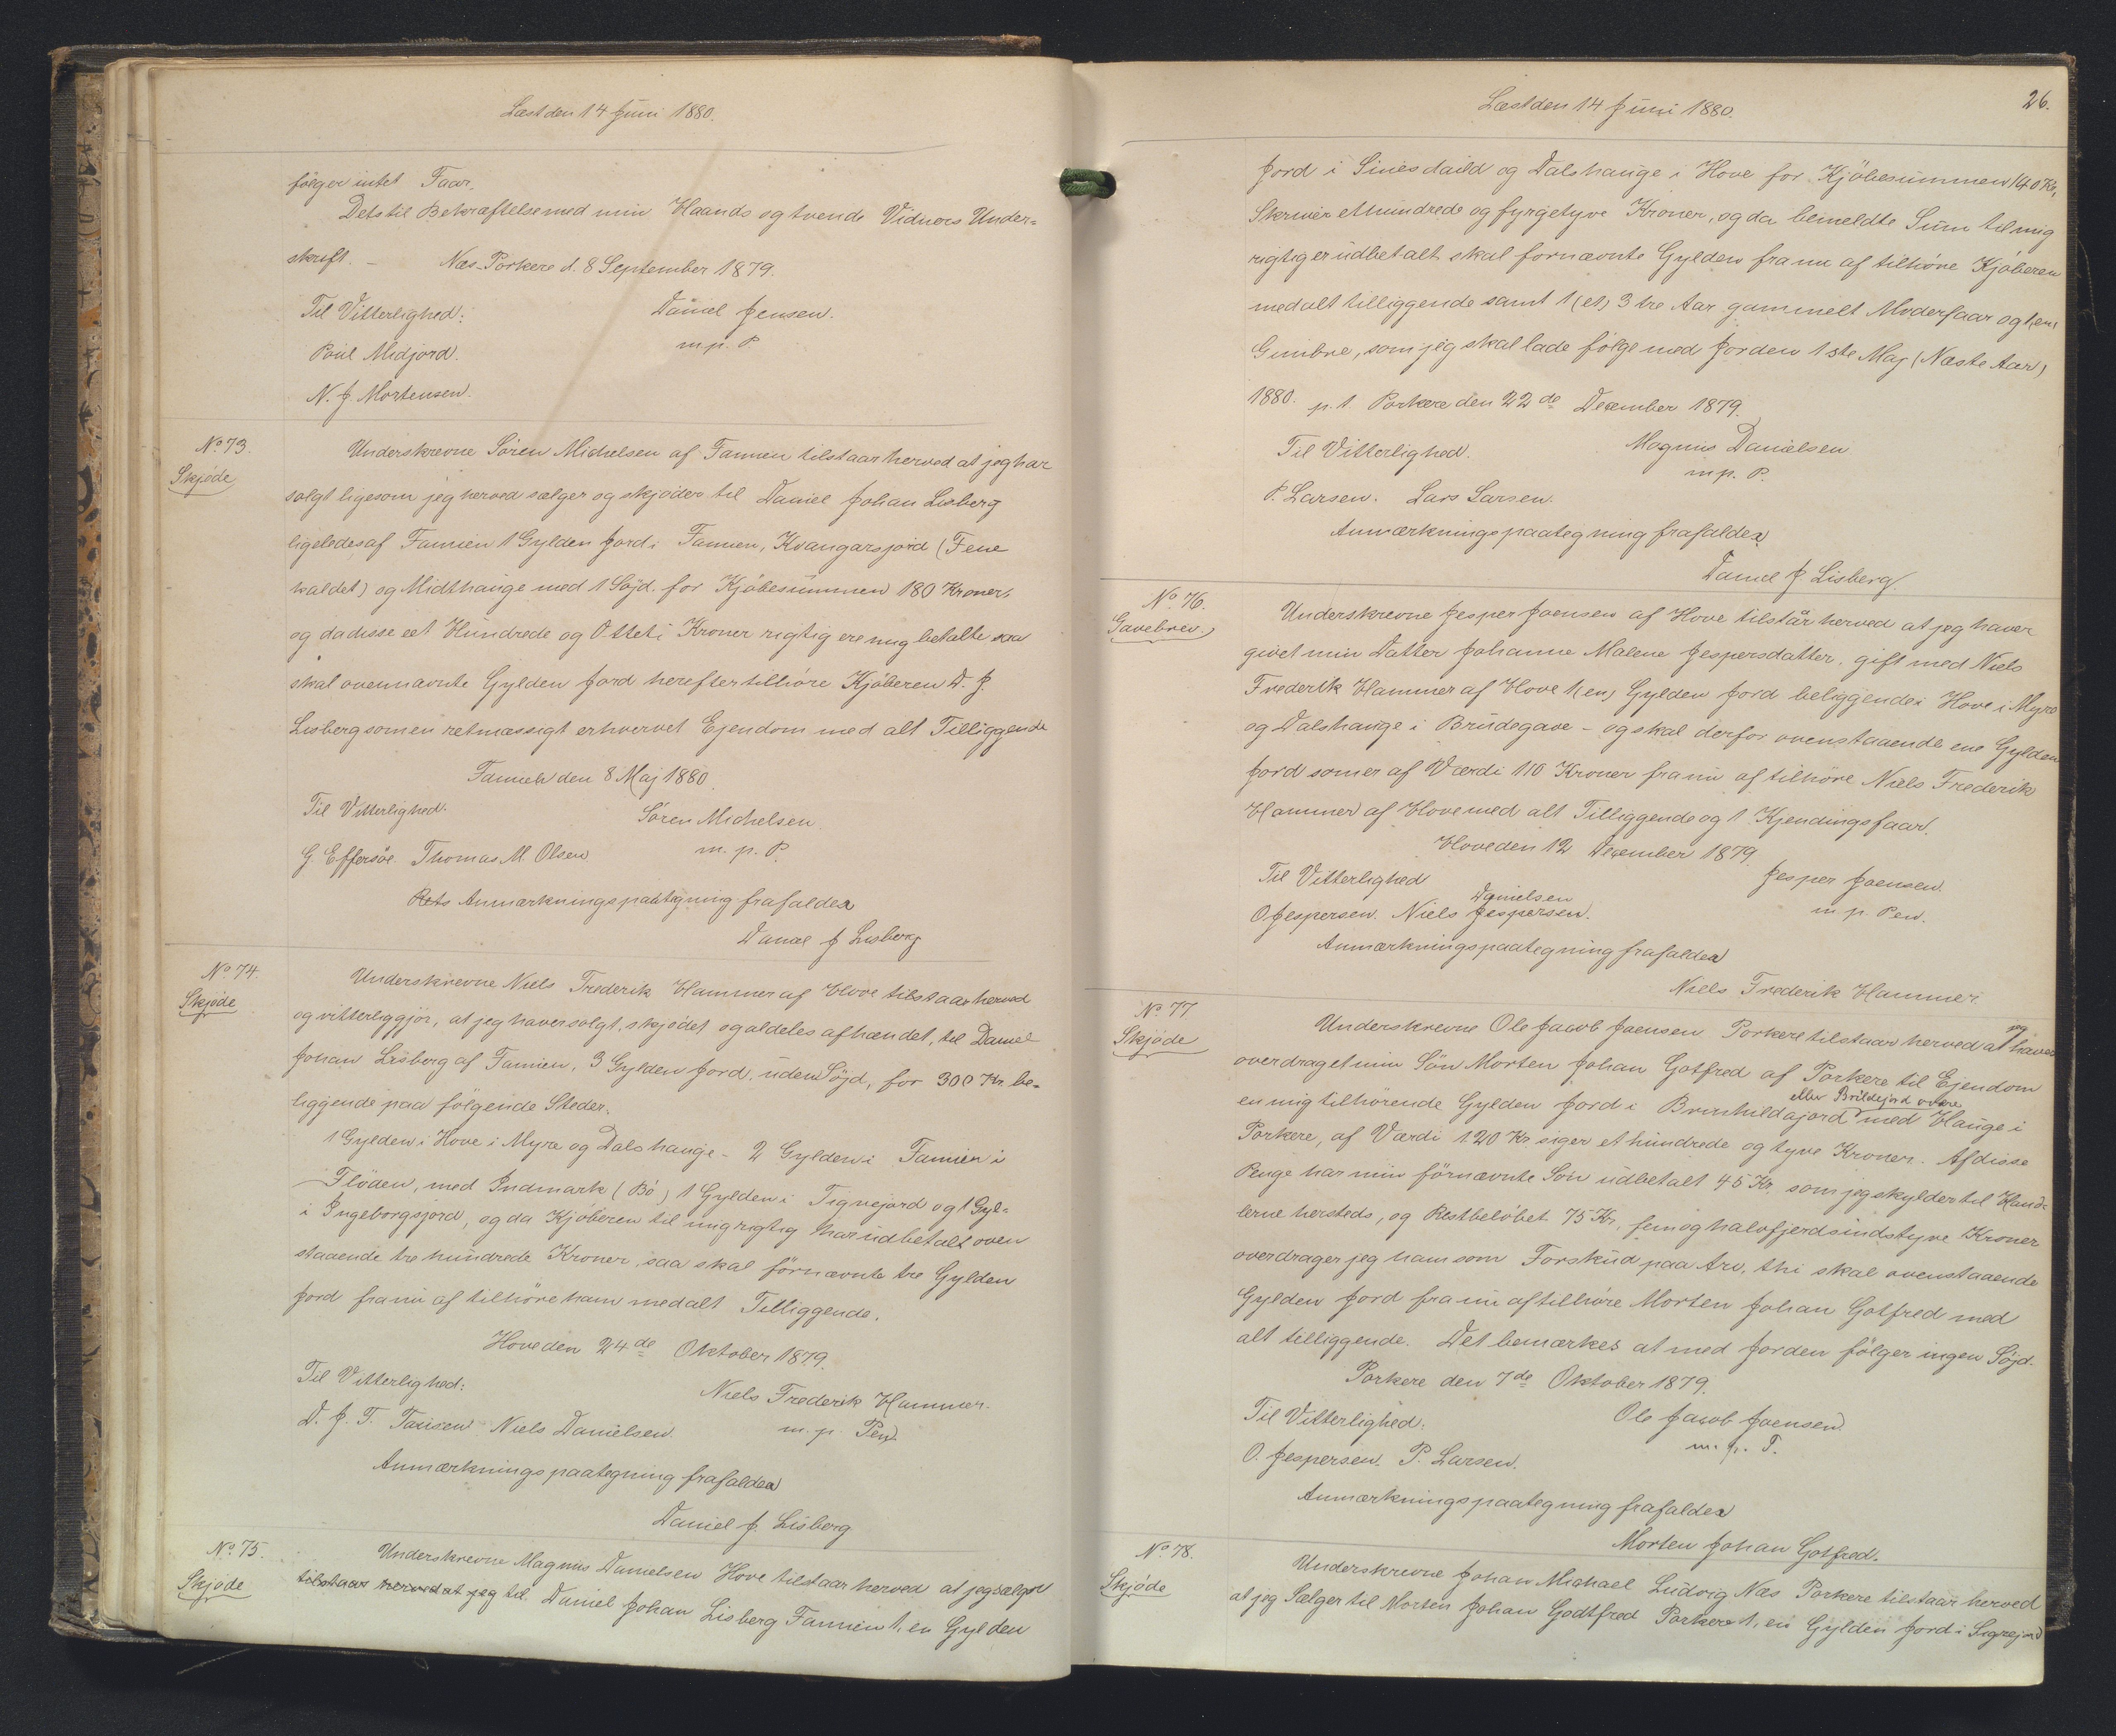 Læst den 14 Juni 1880.
følger intet Faar.
Dets til Bekræftelse med min Haands og tvende Vidners Under=
skrift. — Næs-Porkere d. 8 September 1879.
Til Vitterlighed: Daniel Jensen.
Poul Midjord. m.p. P
N. J. Mortensen.
No 73. Underskrevne Søren Michelsen af Famien tilstaar herved at jeg har
Skjøde
solgt ligesom jeg herved sælger og skjøder til Daniel Johan Lisberg
ligeledes af Famien 1 Gylden Jord i Famien, Kvangarsjord (Fene
haldet) og Midthauge med 1 Søjd. for Kjøbesummen 180 Kroner,
og da disse eet Hundrede og Otteti Kroner rigtig ere mig betalte saa
skal ovennævnte Gylden Jord herefter tilhøre Kjøberen D. J.
Lisberg som en retmæssigt erhvervet Ejendom med alt Tilliggende
Famien den 8 Maj 1880.
Til Vitterlighed. Søren Michelsen.
G. Effersøe Thomas M Olsen m. p. P.
Rets Anmærkningspaategning frafaldes
Daniel J Lisberg
No 74. Underskrevne Niels Frederik Hammer af Hove tilstaar herved
Skjøde
og vitterliggjør, at jeg haver solgt, skjødet og aldeles afhændet, til Daniel
Johan Lisberg af Famien, 3 Gylden Jord, uden Søjd, for 300 Kr. be=
liggende paa følgende Steder.
1 Gylden i Hove i Myre og Dalshauge – 2 Gylden i Famien i
Fløden, med Indmark (Bø) 1 Gylden i Tignejord og 1 Gyl=
i Ingeborgsjord, og da Kjøberen til mig rigtig har udbetalt oven
staaende tre hundrede Kroner, saa skal førnævnte tre Gylden
Jord fra nu af tilhøre ham med alt Tilliggende.
Hove den 24de Oktober 1879.
Til Vitterlighed: Niels Frederik Hammer.
D. J. T. Tausen Niels Danielsen. m. p. Pen.
Anmærkningspaategning frafaldes
Daniel J. Lisberg
No 75. Underskrevne Magnus Danielsen Hove tilstaar herved at jeg sælger
Skjøde tilstaar herved at jeg til Daniel Johan Lisberg Famien 1, en Gylden
26.
Læst den 14 Juni 1880.
Jord i Sinesdaild og Dalshauge i Hove for Kjøbesummen 140 Kr,
Skriver et hundrede og fyrgetyve Kroner, og da bemeldte Sum til mig
rigtig er udbetalt skal fornævnte Gylden fra nu af tilhøre Kjøberen
med alt tilliggende samt 1 (et) 3 tre Aar gammelt Moderfaar og 1, en,
Gimbre, som jeg skal lade følge med Jorden 1ste Maj (Næste Aar)
1880. p. t Porkere den 22de December 1879.
Til Vitterlighed. Magnus Danielsen
P. Larsen. Lars Larsen. m p. P.
Anmærkningspaategning frafaldes
Daniel J Lisberg
No 76. Underskrevne Jesper Joensen af Hove tilstår herved at jeg haver
Gavebrev.
givet min Datter Johanne Malene Jespersdatter, gift med Niels
Frederik Hammer af Hove 1, en, Gylden Jord beliggende i Hove i Myre
og Dalshauge i Brudegave – og skal derfor ovenstaaende ene Gylden
Jord som er af Værdi 110 Kroner fra nu af tilhøre Niels Frederik
Hammer af Hove med alt Tilliggende og 1 Kjendingsfaar.
Hove den 12 December 1879.
Til Vitterlighed Jesper Joensen.
Danielsen
O Jespersen. Niels Jespersen. m. p. Pen.
Anmærkningspaategning frafaldes
Niels Frederik Hammer
No 77. Underskrevne Ole Jacob Joensen Porkere tilstaar herved at jeg haver
Skjøde
overdraget min Søn Morten Johan Gotfred af Porkere til Ejendom
eller Brildejord øvere
en mig tilhørende Gylden Jord i Brunhildajord med Hauge i
Porkere, af Værdi 120 Kr siger et hundrede og tyve Kroner. Af disse
Penge har min førnævnte Søn udbetalt 45 Kr. som jeg skylder til Hand=
lerne hersteds, og Restbeløbet 75 Kr, fem og halvfjerdsindstyve Kroner
overdrager jeg ham som Forskud paa Arv, thi skal ovenstaaende
Gylden Jord fra nu af tilhøre Morten Johan Gotfred med
alt tilliggende. Det bemærkes at med Jorden følger ingen Søjd.
Porkere den 7de Oktober 1879.
Til Vitterlighed: Ole Jacob Joensen.
O. Jespersen. P. Larsen. m. p. T.
Anmærkningspaategning frafaldes
Morten Johan Gotfred.
No 78. Underskrevne Johan Michael Ludvig Næs Porkere tilstaar herved
Skjøde at jeg Sælger til Morten Johan Godtfred Porkere 1, en Gylden Jord i